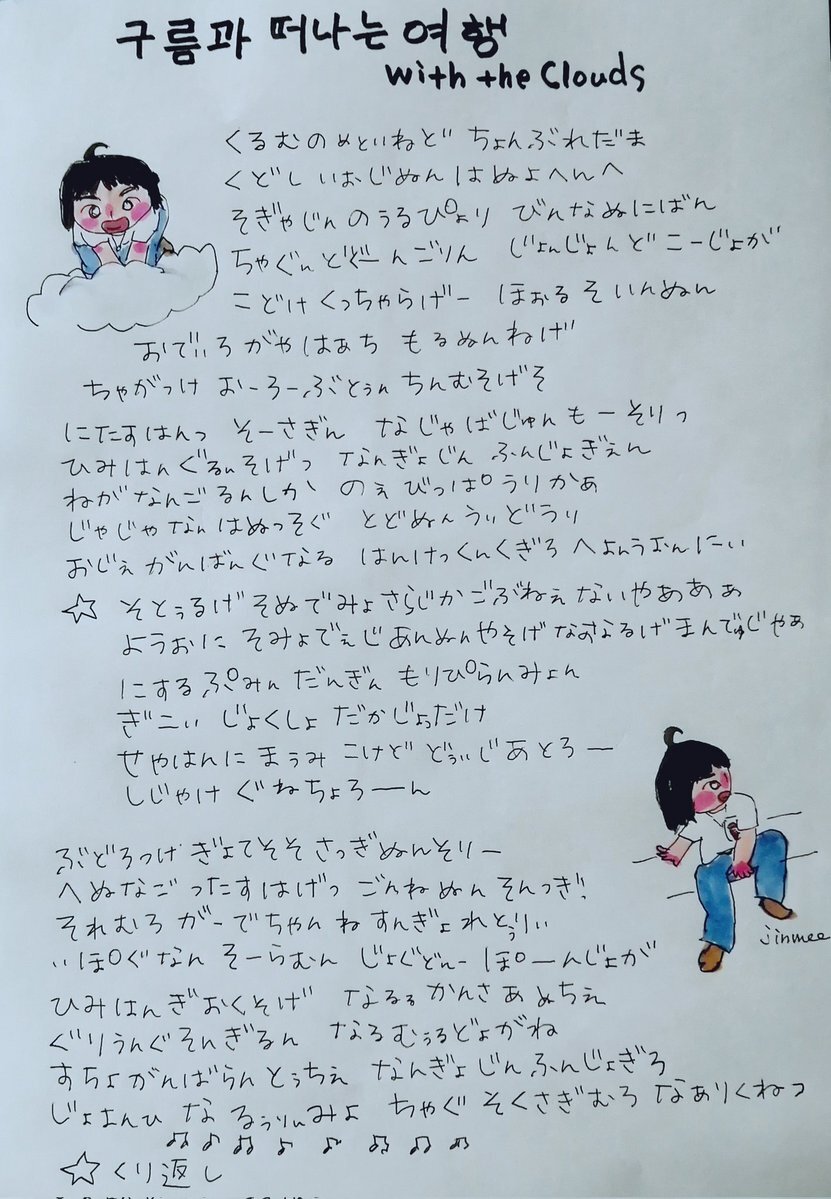 구름과 떠나는 여행
with the Clouds
くるむの めといねど ちょんぶれだま
くどし いおじぬん はぬよへんへ
そぎゃじん のうるぴより びんなぬにばん
ちゃぐん どぐーんごりん じょんじょんど こーじょが
こどけ くっちゃらげー ほぉる そ いんぬん
おでぃろ がやはぁち もるぬんねげ
ちゃがっけ おーろーぶとぅん ちんむそげそ
にたすはんっ そーさぎん なじゃばじゅん もーそりっ
ひみはんぐるぃそげっ なんぎょじん ふんじょぎぇん
ねがなんごるんしか のぇ びっぱうりかぁ
じゃじゃなん はぬっそぐ とどぬん うぃどうり
おじぇ がんばんぐなる はんけっくんくぎろ へよんうおんにぃ
☆ そとぅるげ そぬでみょ さらじかごぶねぇ ないやあぁぁ
ようおに そみょでぇじ あんぬんやそげ なおなるげ まんでゅじやぁ
にするぷみん だんぎん もりぴらんみょん
ぎこぃ じょくしょ だかじょっだけ
せやはんに まぅみ こけど どぅぃじあとろー
しじゃけ ぐねちょろーーん
ぶどろっけ ぎょてそそ さっぎぬんそりー
へぬなご ったすはげっ ごんねぬん そんっき!!
それむろ がーでちゃん ね すんぎょ れとぅりぃ
ぃぽぐなん そーらむん じょぐどんー ぽーんじょが
ひみはんぎおくそげ なるぅ かんさ あぬちぇ
ぐりうんぐそんぎるん なるむぅるどょがね
すちょがんばらん とぅちぇ なんぎょじん ふんじょぎろ
じょまんひ な るぅりぃみよ ちゃぐ そくさぎむろ なありくねっ
☆くり返し
jinmee